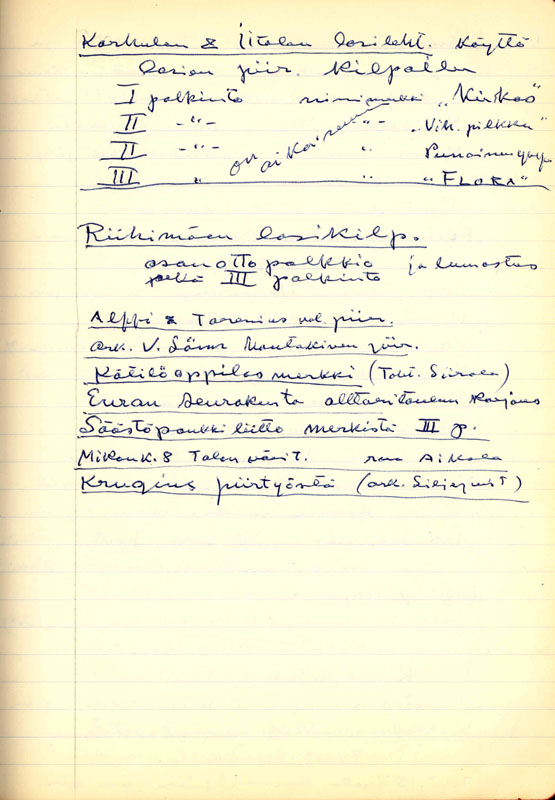 Karhulan & Iitalan lasileht. Käyttö
lasien piir. Kilpailu
I palkinto nimimerkki „Kirkas"
II –"– –"– „Vih. pilkku"
II –"– on aikaisemm. " Punainen
III " " " "FLORA"
Riihimäen lasikilp.
osanottopalkkio ja lunastus
sekä III palkinto
Alppi & Torenius val. piir.
ark. V. Särm Hautakiven piir.
Kätilöoppilasmerkki (Toht. Siirala)
Euran Seurakunta alttaritaulun Korjaus
Säästöpankkiliitto merkistä III p.
Mikonk. 8 Talon värit. Aikala
Krugius piirtyöstä (ark. Siliaqvist)